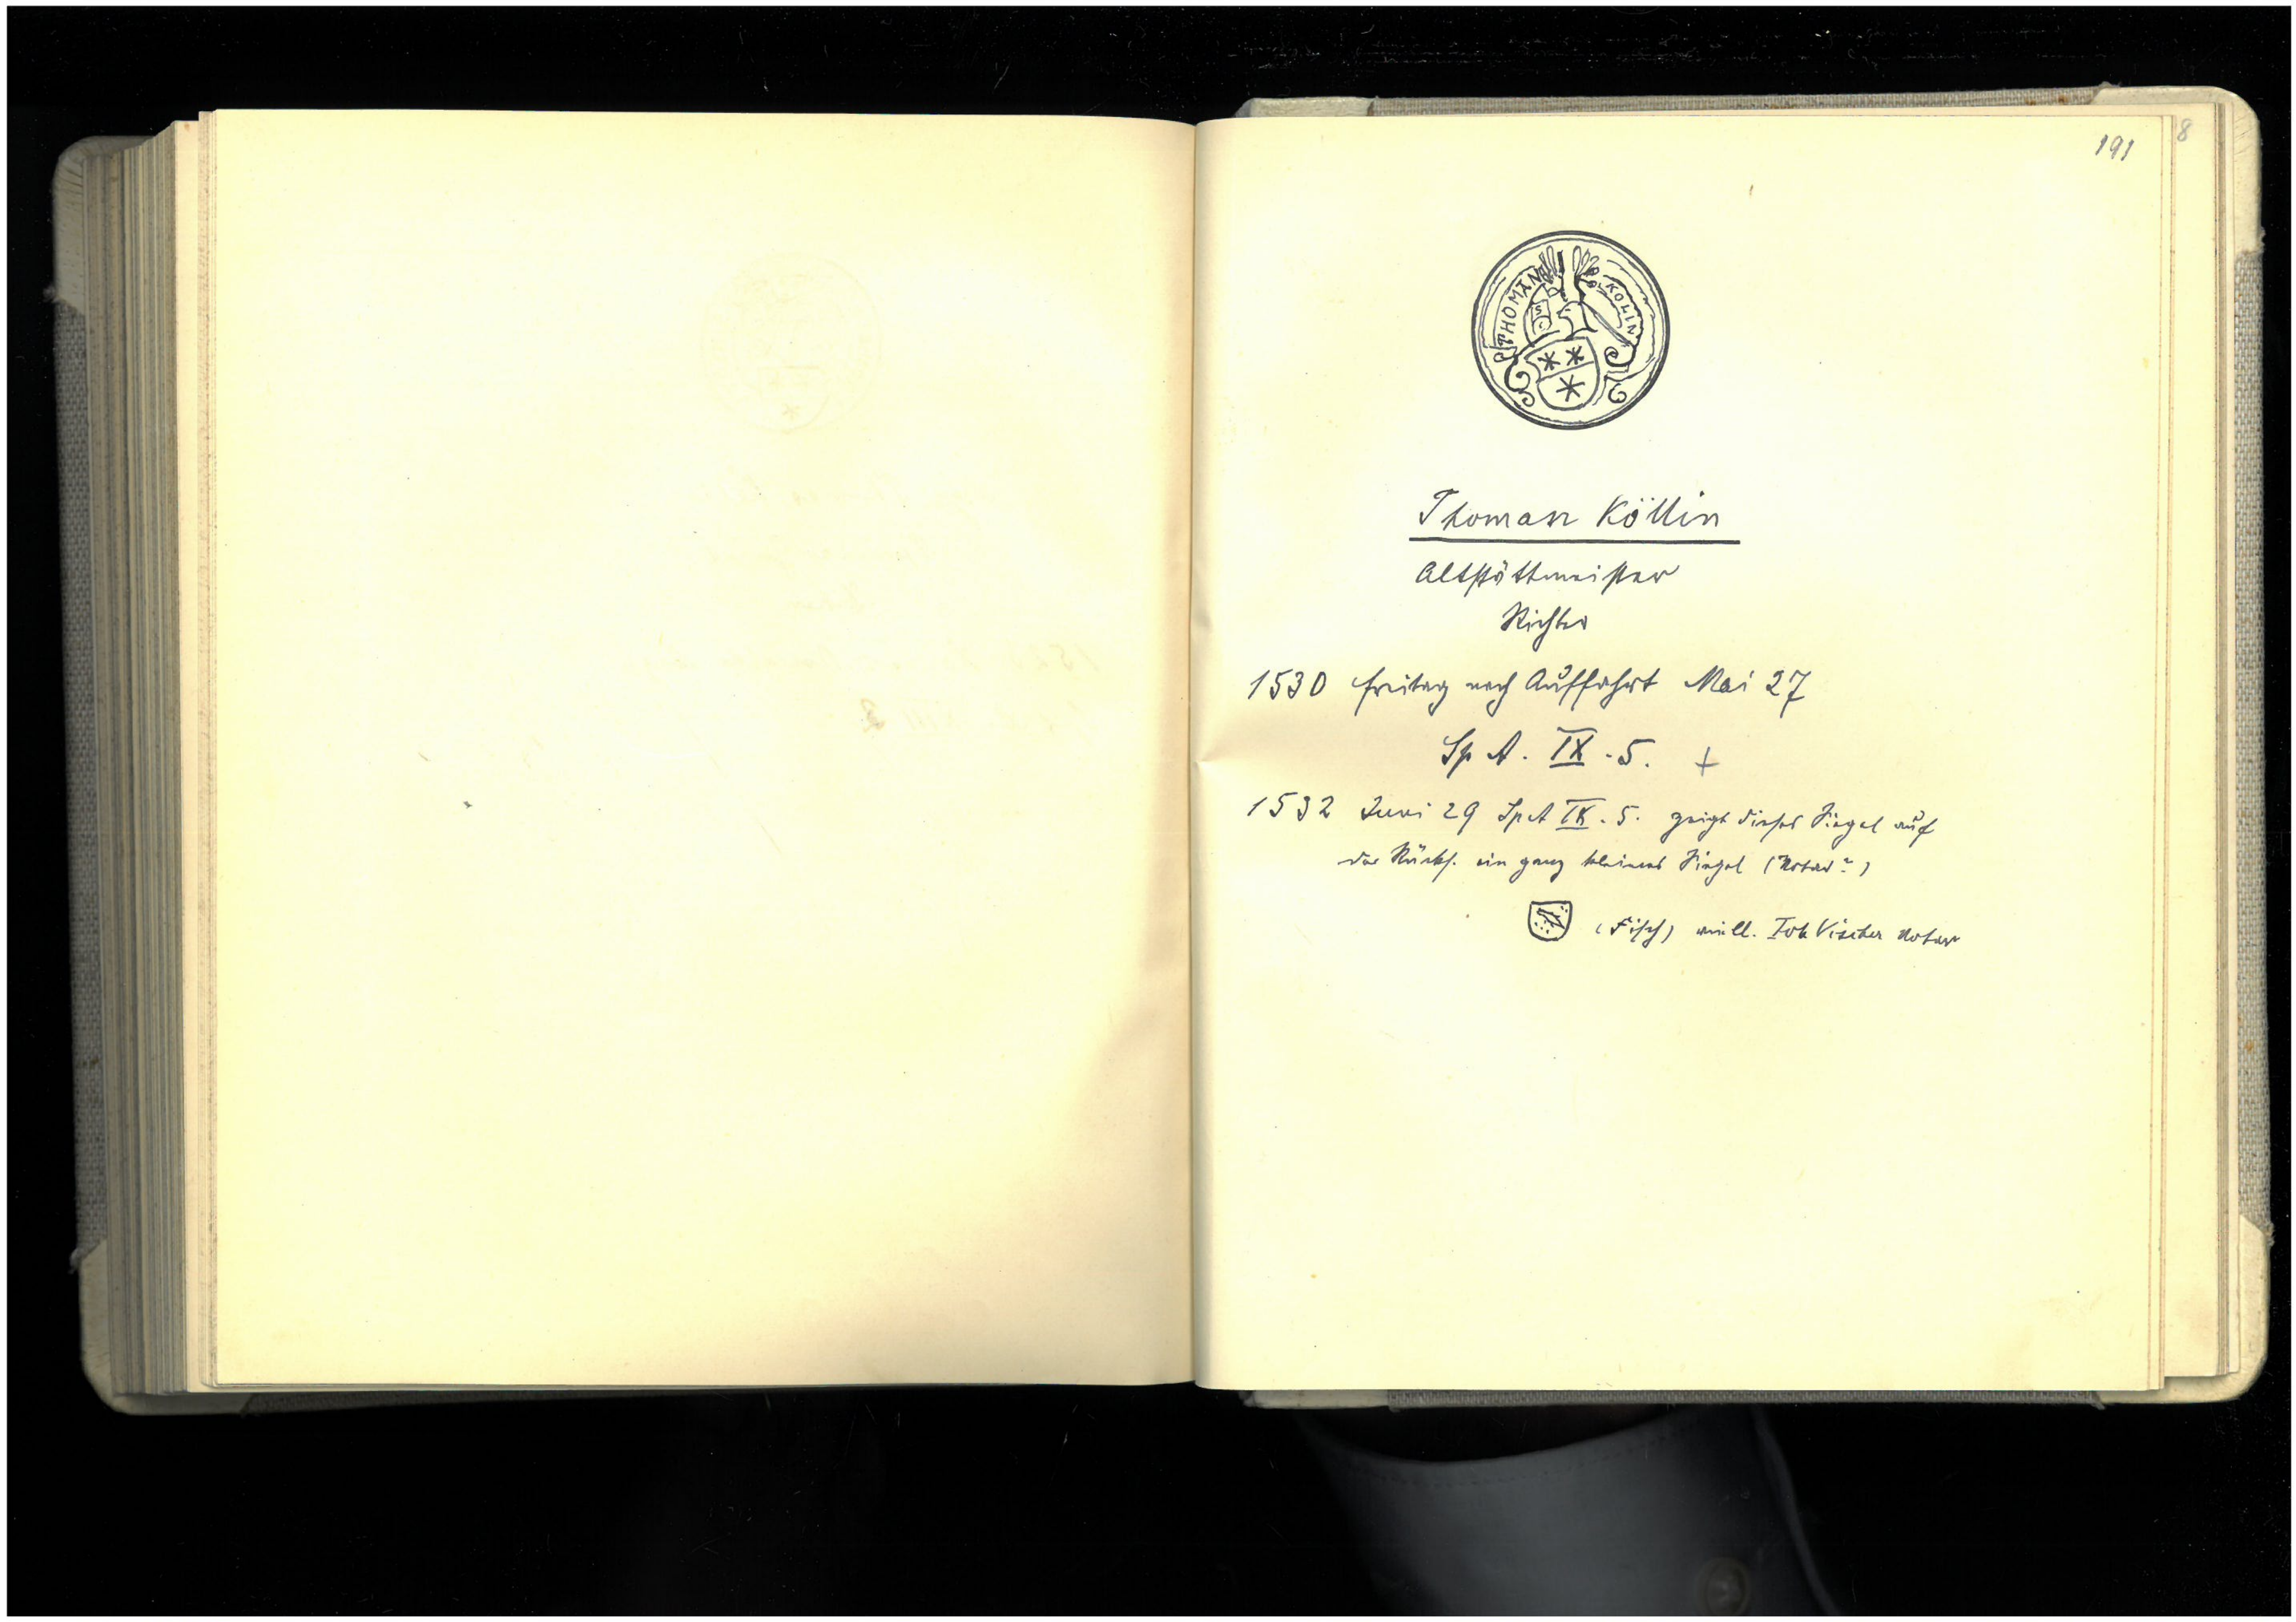 191
8
THOMAN
KOLIN
Thoman Köllin
Altstättmeister
Richter
1530 freitag nach Auffahrt Mai 27
Sp A. IX. 5. +
1532 Juni 29 Sp A IX. 5. zeigt dieses Siegel auf
der Rücks. ein ganz kleines Siegel (Notar?)
(Fisch) viell. Joh Vischer Notar